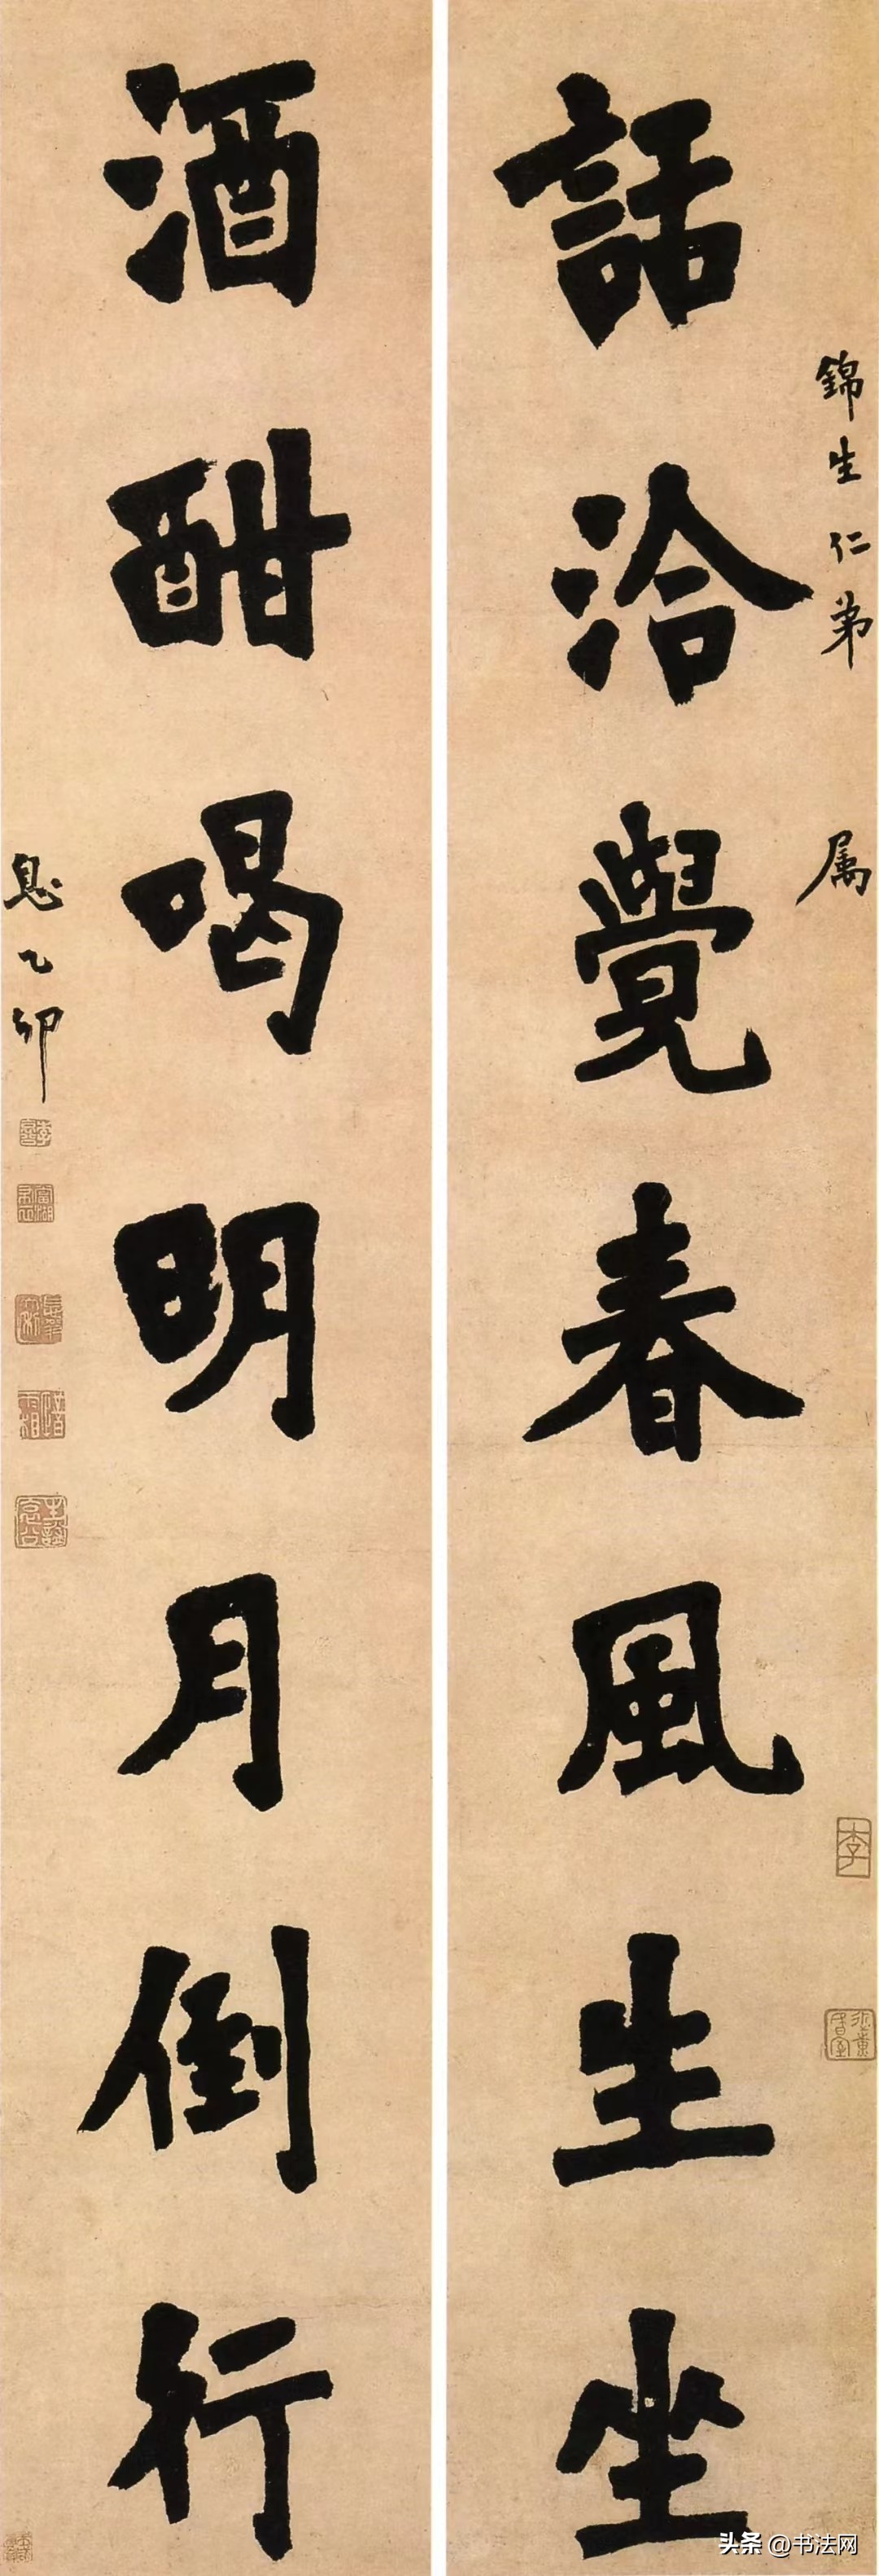 錦生仁弟 属
話洽覺春風生坐
酒酣喝明月倒行
息乙卯
李
头条 @书法网